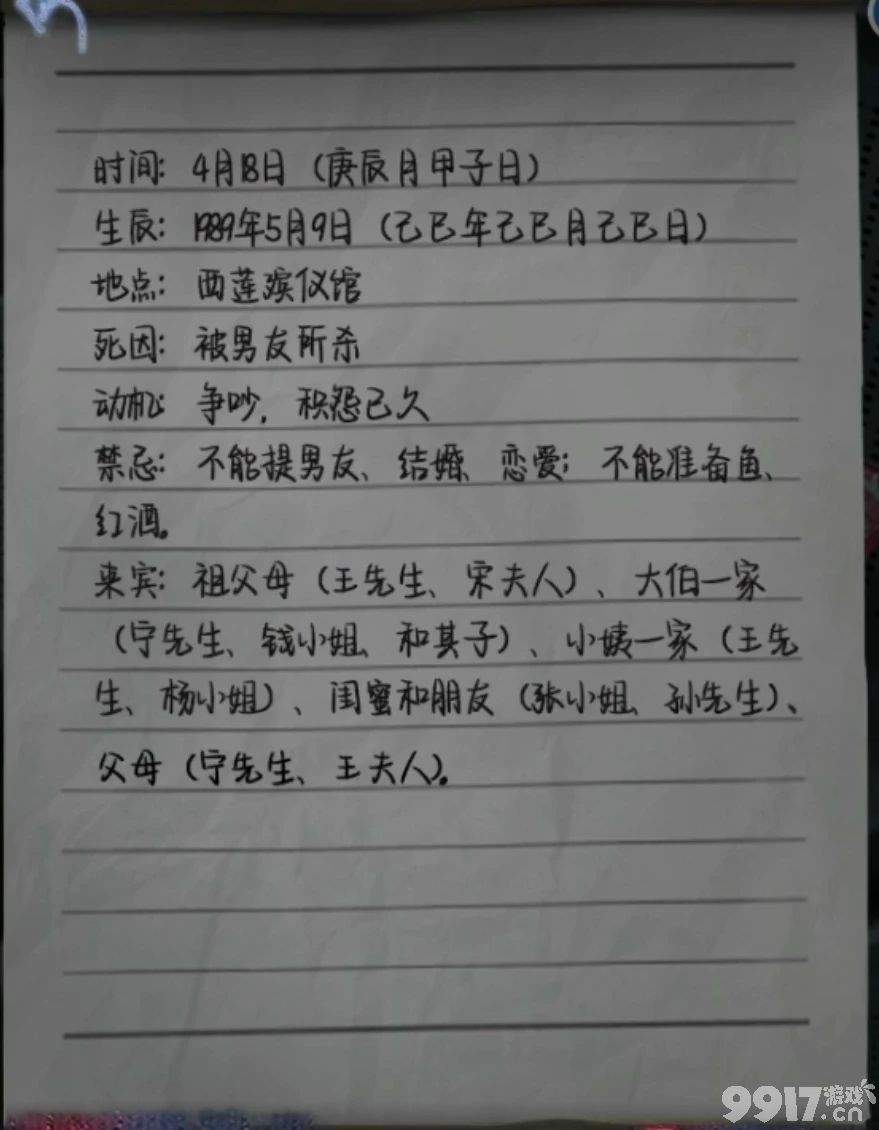 时间：4月18日（庚辰月甲子日）
生辰：1989年5月9日（己巳年己巳月己巳日）
地点：西莲殡仪馆
死因：被男友所杀
动机：争吵，积怨已久
禁忌：不能提男友、结婚、恋爱；不能准备鱼、
红酒。
来宾：祖父母（王先生、宋夫人）、大伯一家
（宁先生、钱小姐、和其子）、小姨一家（王先
生、杨小姐）、闺蜜和朋友（张小姐、孙先生）、
父母（宁先生、王夫人）。
9917游戏.cn